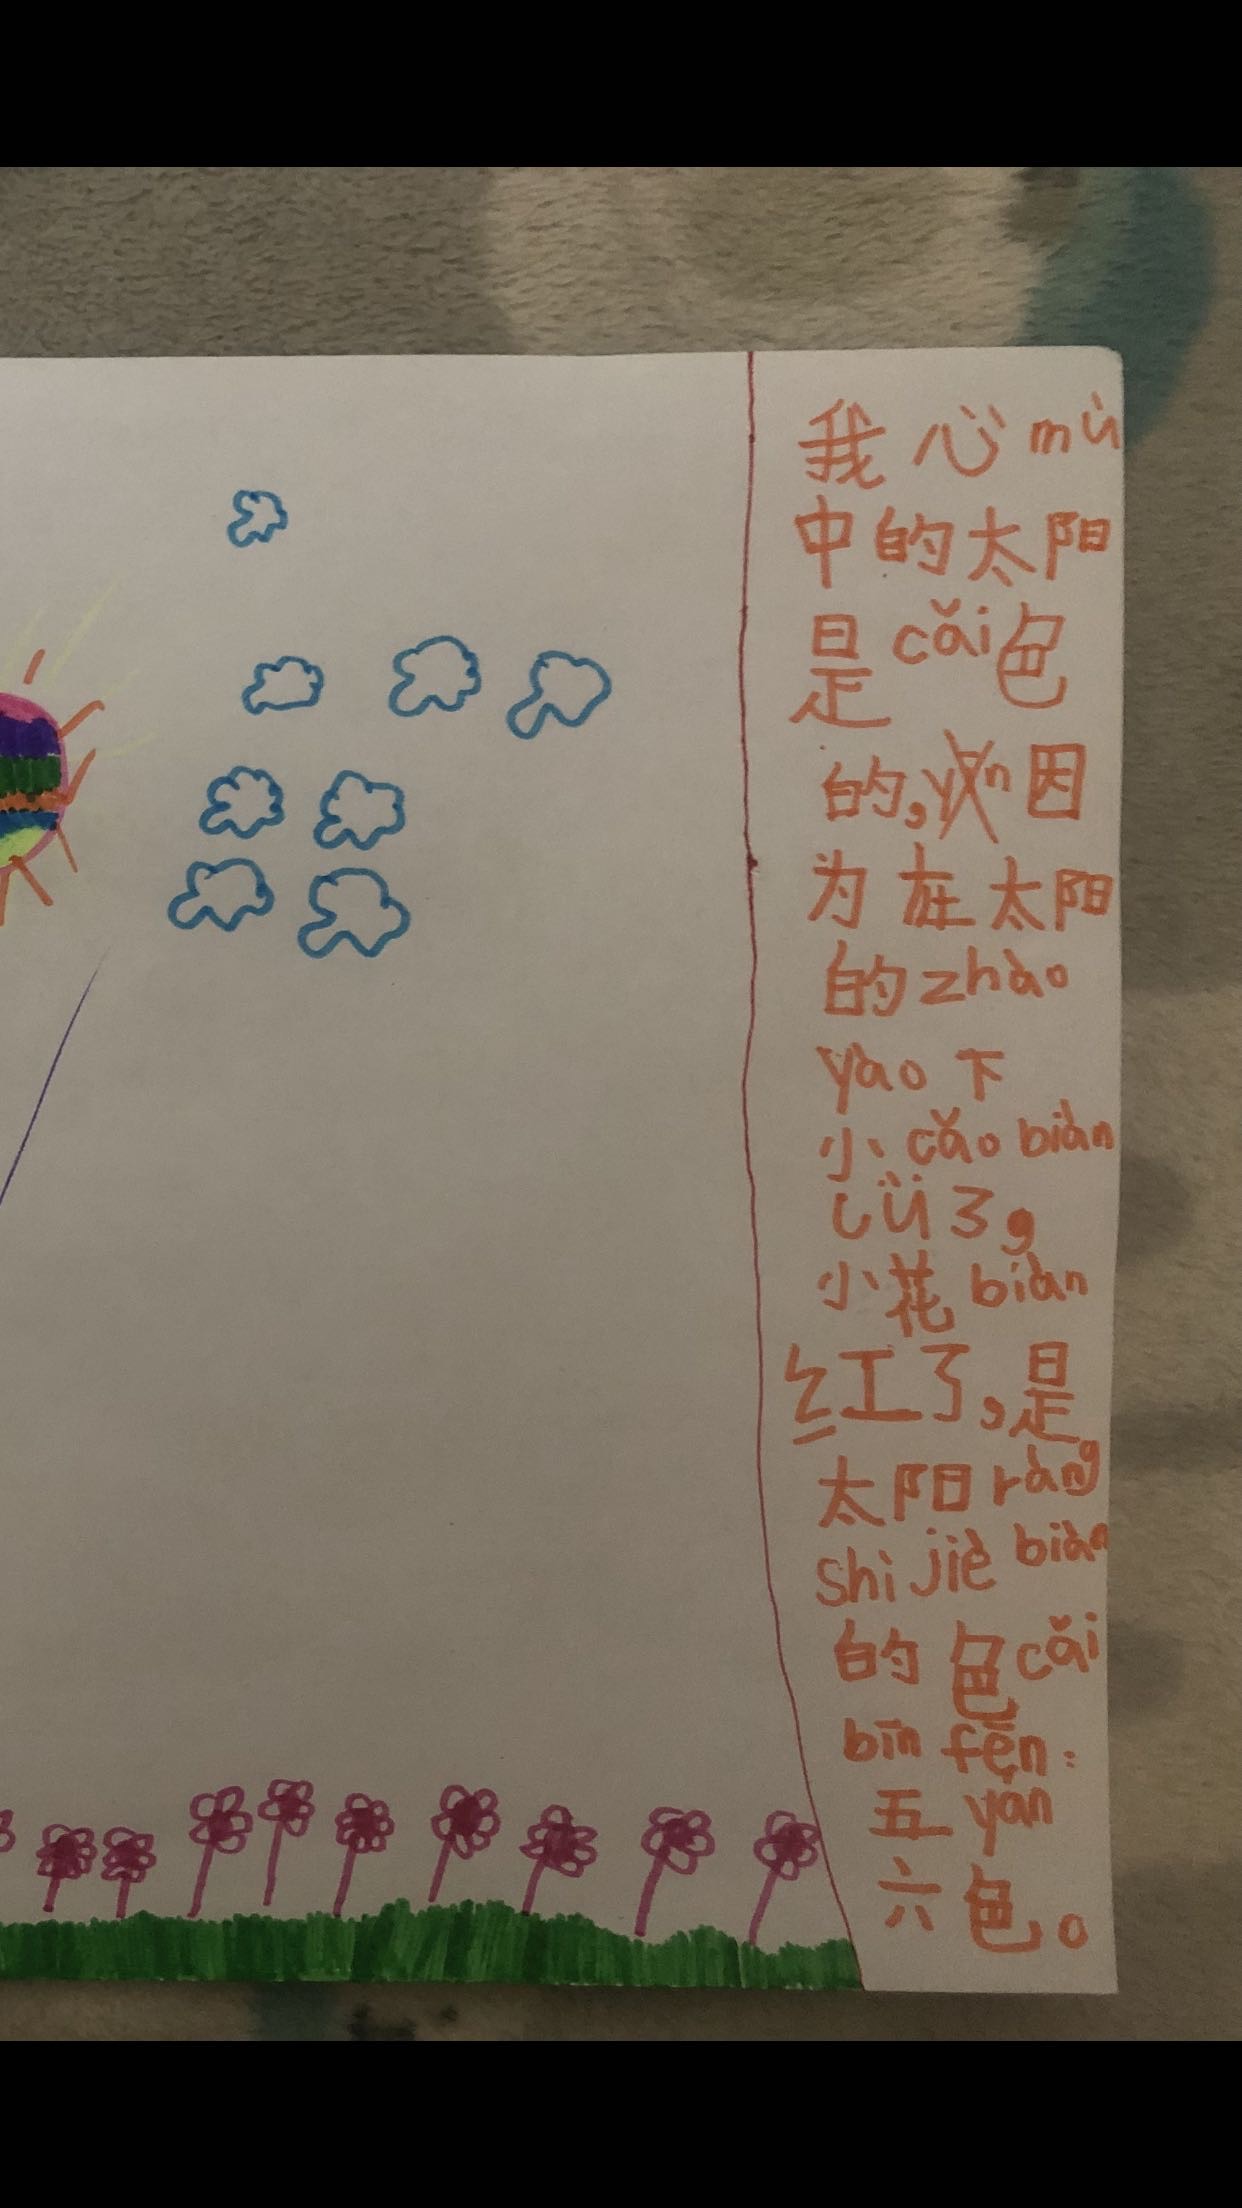 我心mù
中的太阳
是cǎi色
的,因
为在太阳
的zhào
yào下
小cǎo biàn
lǜ了,
小花biàn
红了,是
太阳ràng
shì jiè biàn
的色cǎi
bīn fēn:
五yán
六色。